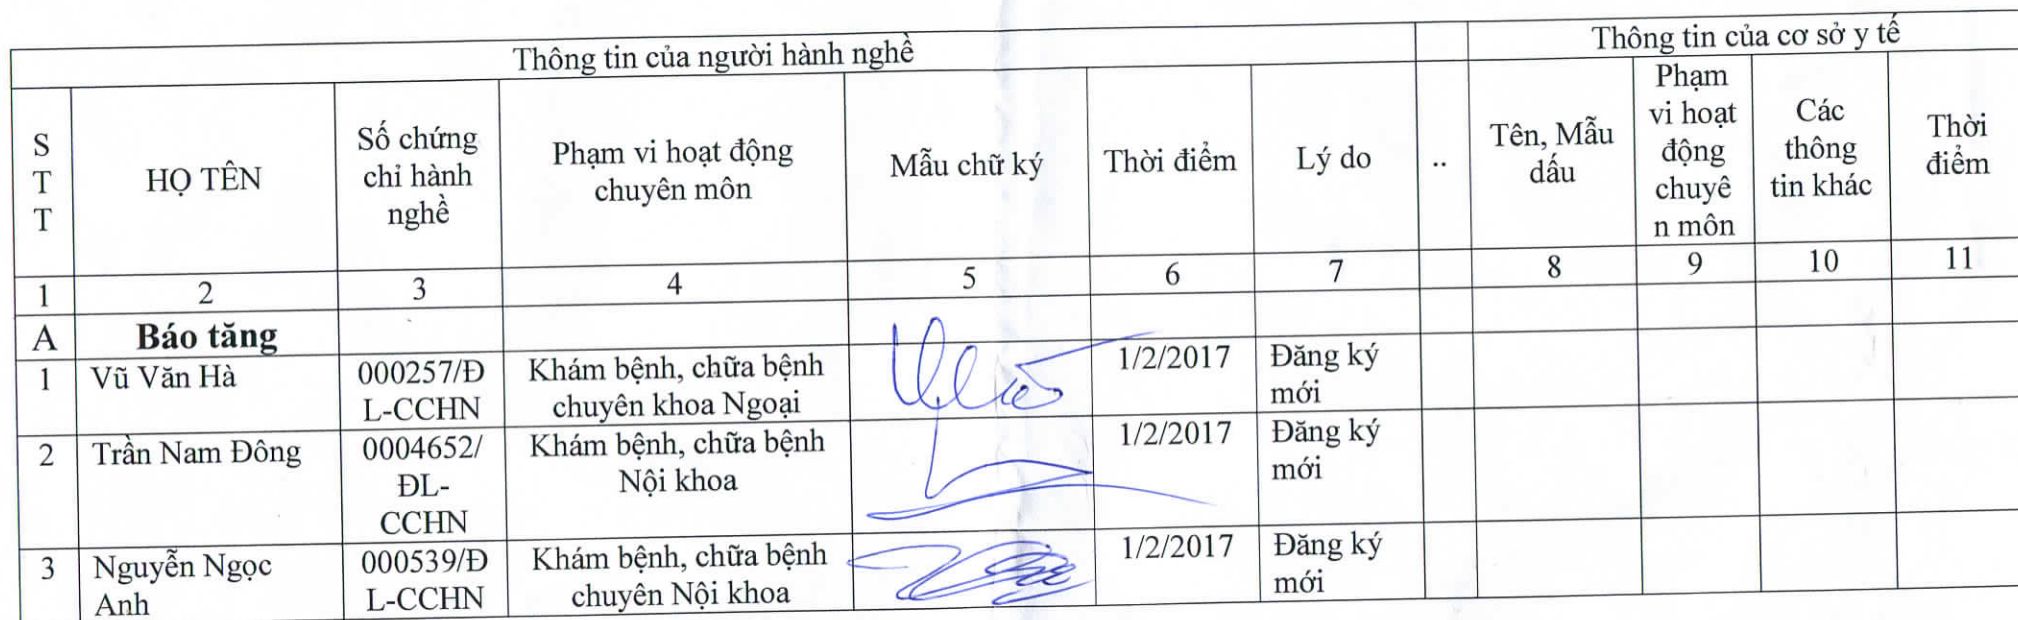 Thông tin của người hành nghề
Thông tin của cơ sở y tế
S
T
T
HỌ TÊN
Số chứng
chỉ hành
nghề
Phạm vi hoạt động
chuyên môn
Mẫu chữ ký
Thời điểm
Lý do
..
Tên, Mẫu
dấu
Phạm
vi hoạt
động
chuyê
n môn
Các
thông
tin khác
Thời
điểm
1 2 3 4 5 6 7 8 9 10 11
A Báo tăng
1
Vũ Văn Hà
000257/Đ
L-CCHN
Khám bệnh, chữa bệnh
chuyên khoa Ngoại
1/2/2017
Đăng ký
mới
2
Trần Nam Đông
0004652/
ĐL-
CCHN
Khám bệnh, chữa bệnh
Nội khoa
1/2/2017
Đăng ký
mới
3
Nguyễn Ngọc
Anh
000539/Đ
L-CCHN
Khám bệnh, chữa bệnh
chuyên Nội khoa
1/2/2017
Đăng ký
mới